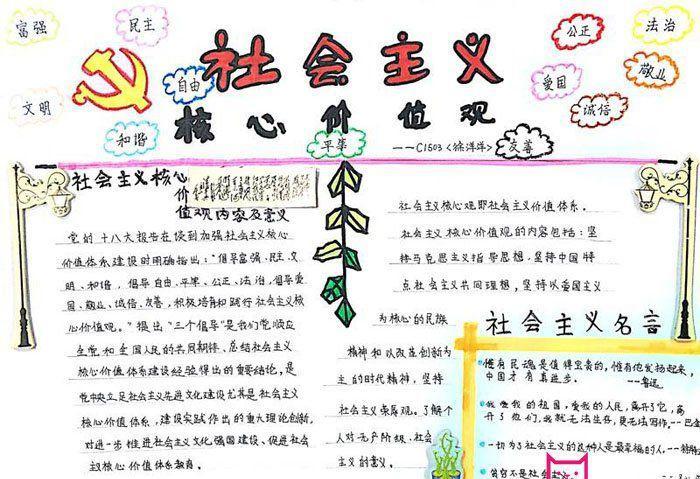 富强
民主
公正
法治
社会主义
自由
爱国
敬业
文明
核心价值观
诚信
和谐
平等
——C1503《徐洋洋》
友善
社会主义核心
价
值观内容及意义
党的十八大报告在谈到加强社会主义核心
价值体系建设时明确指出:"倡导富强、民主、文
明、和谐,倡导自由、平等、公正、法治,倡导爱
国、敬业、诚信、友善,积极培育和践行社会主义核
心价值观。"提出"三个倡导"是我们党顺应
全党和全国人民的共同期待、总结社会主义
核心价值体系建设经验得出的重要结论,是
党中央立足社会主义先进文化建设尤其是社会主义
核心价值体系,建设实践作出的重大理论创新,
对进一步推进社会主义文化强国建设、促进社会
主义核心价值体系教育。
社会主义核心观即社会主义价值体系。
社会主义核心价值观的内容包括:坚
持马克思主义指导思想,坚持中国特
点社会主义共同理想,坚持以爱国主义
为核心的民族
精神和以改革创新为
主的时代精神,坚持
社会主义荣辱观。了解个
人对无产阶级、社会
主义的意义。
社会主义名言
惟有民魂是值得宝贵的,惟有他发扬起来,
中国才有真进步。 --鲁迅
我爱我的祖国,爱我的人民,离开了它,离
开了他们,我就无法生存,更无法写作。--巴金
一切为了社会主义的这种人是最幸福的人。
贫穷不是社会主义